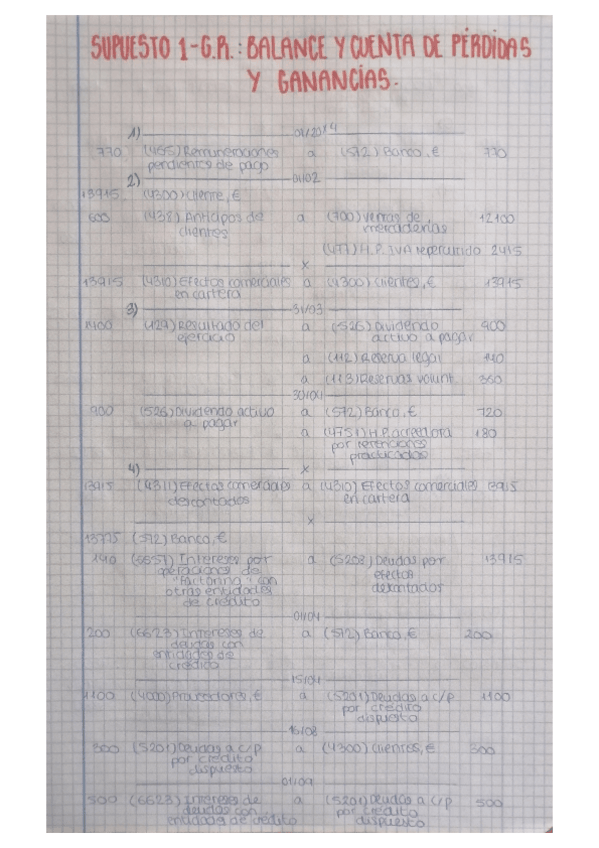 SUPUESTO 1-G.R.: BALANCE Y CUENTA DE PÉRDIDAS
Y GANANCIAS.
1) 01/2014
770 (465) Remuneraciones a (572) Banco, € 770
pendientes de pago
2) 01/02
13915 (4300) Cliente, €
600 (438) Anticipos de a (700) Ventas de 12100
clientes mercaderías
(477) H.P. IVA repercutido 2415
x
13915 (4310) Efectos comerciales a (4300) Clientes, € 13915
en cartera
3) 31/03
(129) Resultado del a (526) Dividendo 900
ejercicio activo a pagar
a (112) Reserva legal 140
a (113) Reservas volunt. 360
900 (526) Dividendo activo a (572) Banco, € 720
a pagar
a (4751) H.P. acreedora 180
por retenciones
practicadas
4) x
13915 (4311) Efectos comerciales a (4310) Efectos comerciales
descontados en cartera
x
13775 (572) Banco, €
140 (6651) Intereses por a (5208) Deudas por 13915
operaciones de efectos
"Factoring" con
otras entidades
de crédito
01/04
200 (6623) Intereses de a (572) Banco, € 200
deudas con
entidades de
crédito
15/04
1100 (4000) Proveedores, € a (5201) Deudas a c/p 1100
por crédito
dispuesto
16/08
300 (5201) Deudas a c/p a (4300) Clientes, € 300
por crédito
dispuesto
01/09
500 (6623) Intereses de a (5201) Deudas a c/p 500
deudas con por crédito
entidades de crédito dispuesto